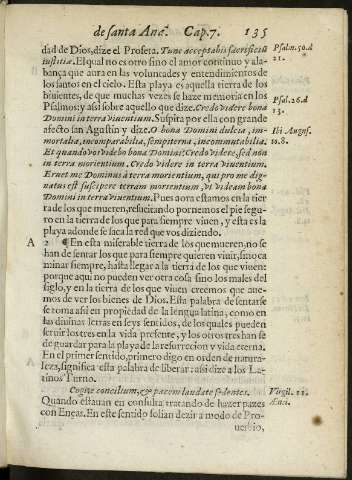 de santa Ana. Cap. 7. 135
dad de Dios, dize el Profeta. Tunc acceptabis sacrificiũ
iustitiæ. El qual no es otro sino el amor continuo y ala-
bança que aura en las voluntades y entendimientos de
los santos en el cielo. Esta playa es aquella tierra de los
biuientes, de que muchas vezes se haze memoria en los
Psalmos; y assi sobre aquello que dize. Credo videre bona
Domini in terra viuentium. Suspira por ella con grande
afecto san Augustin y dize. O bona Domini dulcia, im-
mortalia, incomparabilia, sempiterna, incommutabilia.
Et quando vos videbo bona Domini? Credo videre, sed nõ
in terra morientium. Credo videre in terra viuentium.
Eruet me Dominus à terra morientium, qui pro me dig-
natus est suscipere terram morientium, vt videam bona
Domini in terra viuentium. Pues aora estamos en la tier
ra de los que mueren, resucitando pornemos el pie segu-
ro en la tierra de los que para siempre viuen, y esta es la
playa adonde se saca la red que vos diziendo.
A 2 ¶ En esta miserable tierra de los que mueren, no se
han de sentar los que para siempre quieren viuir, sino ca
minar siempre, hasta llegar a la tierra de los que viuen:
porque aqui no pueden ver otra cosa sino los males del
siglo, y en la tierra de los que viuen creemos que aue-
mos de ver los bienes de Dios. Esta palabra de sentarse
se toma assi en propiedad de la lengua latina, como en
las diuinas letras en seys sentidos, de los quales pueden
seruir los tres en la vida presente, y los otros tres han se
de guardar para la playa de la resurreccion y vida eterna.
En el primer sentido, primero digo en orden de natura-
leza, significa esta palabra de liberar: assi dize a los La-
tinos Turno.
Cogite concilium, & pacem laudate sedentes.
Quando estauan en consulta tratando de hazer pazes
con Eneas. En este sentido solian dezir a modo de Pro-
uerbio,
Psalm. 50. d
21.
Psal. 26. d
13.
Ibi Augus.
to. 8.
Virgil. 11.
Æn.